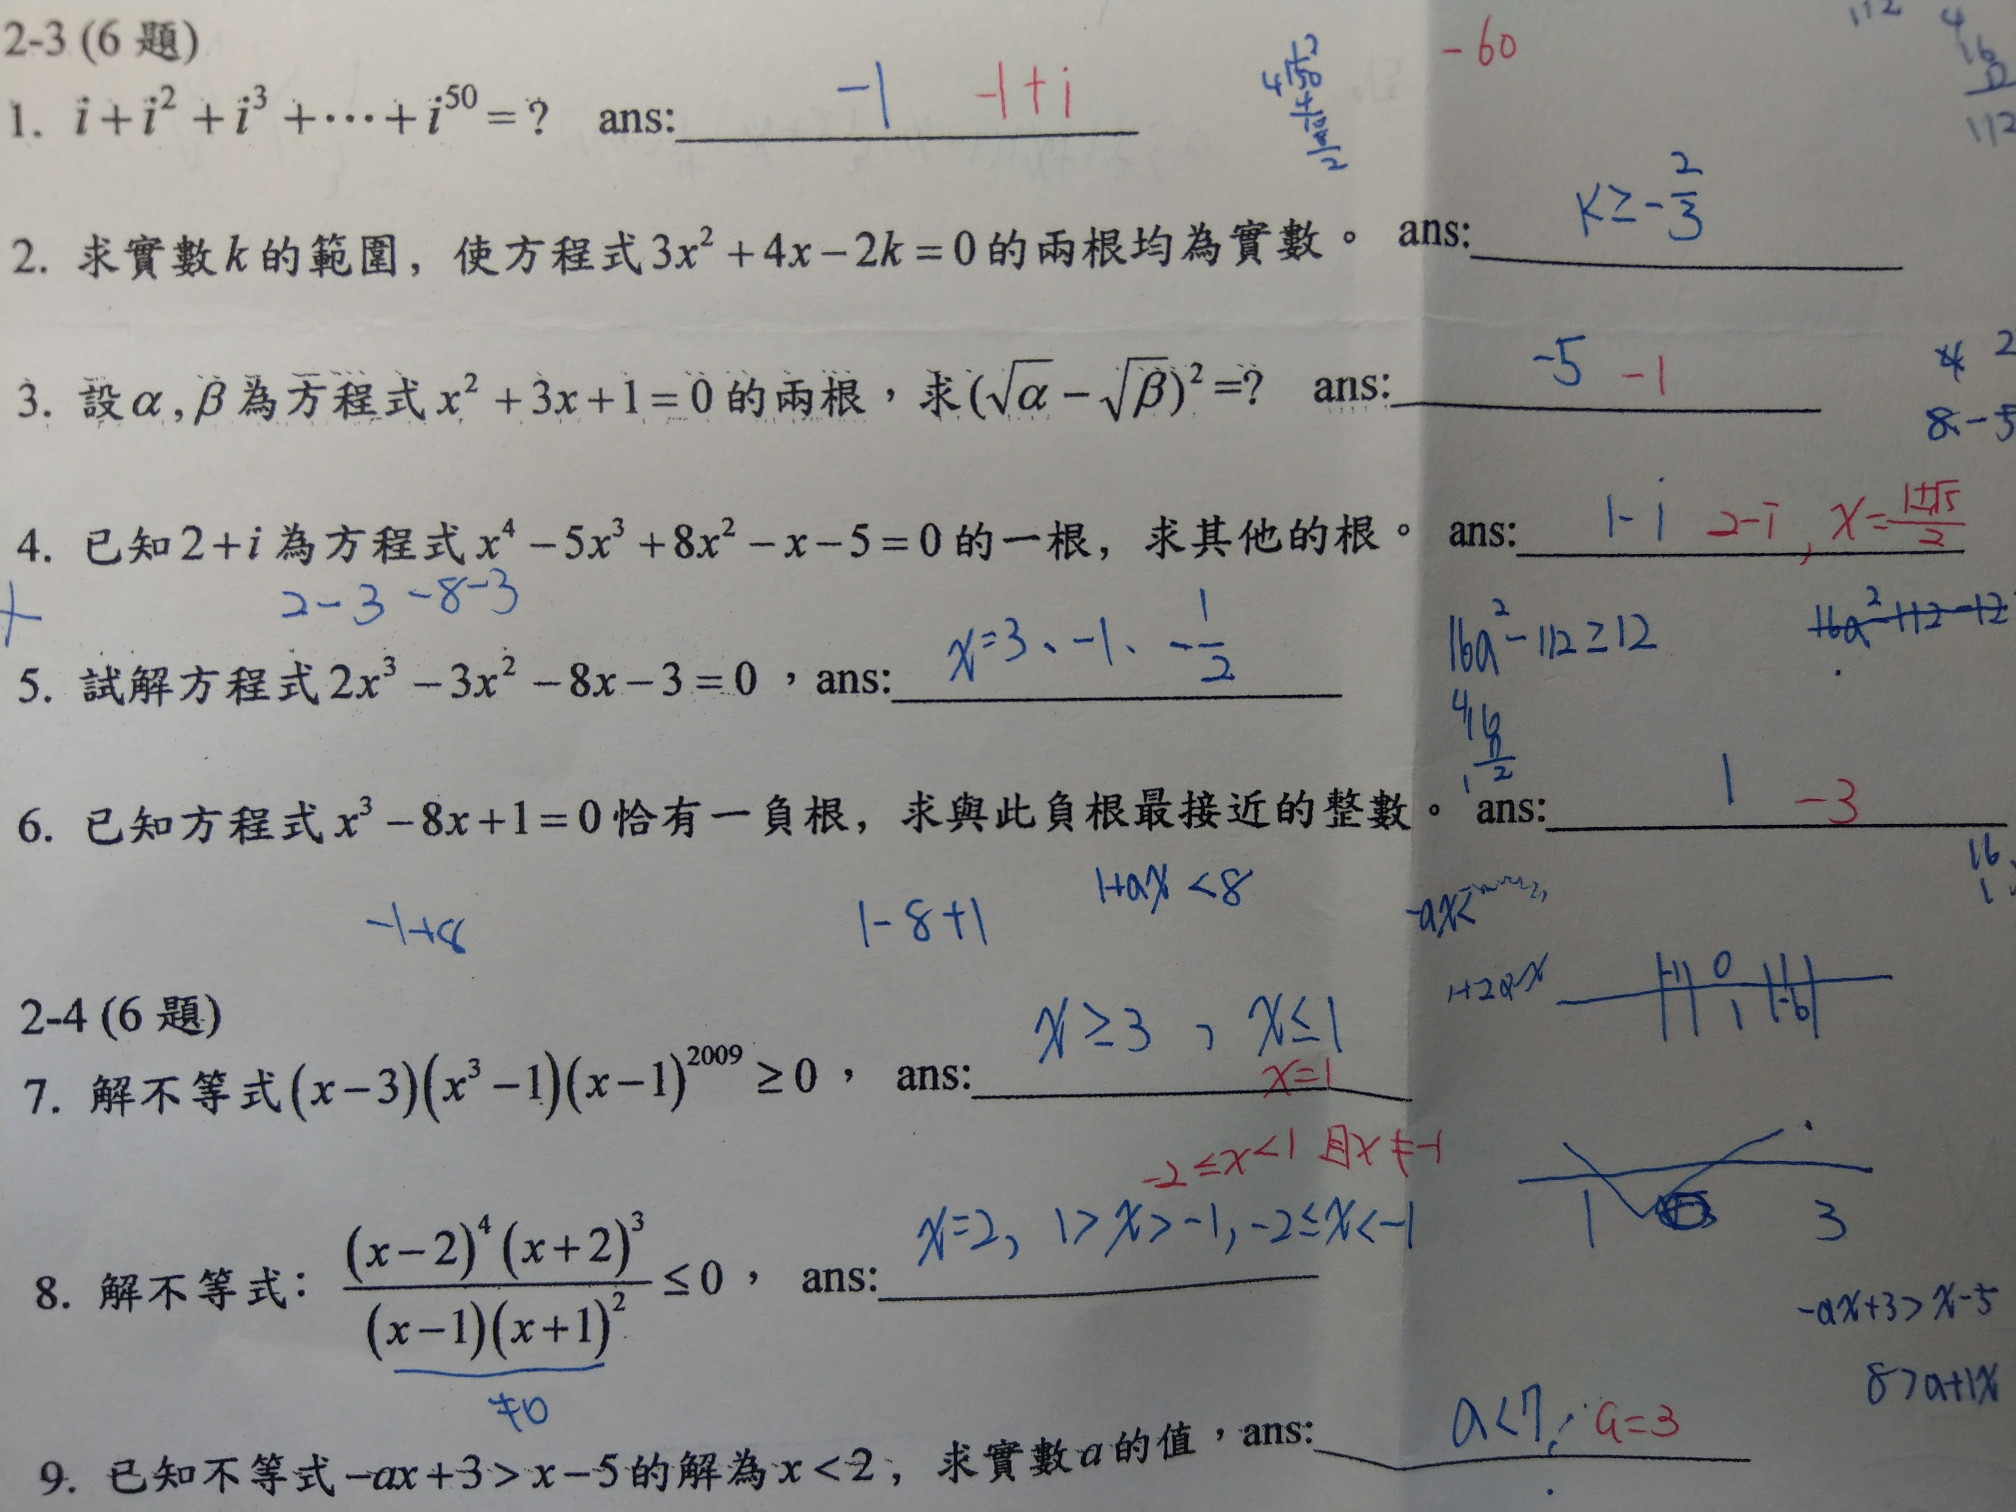 2-3 (6 題) -60 112 4
16
12
112
1. i+i²+i³+⋯+i⁵⁰=? ans: -1 -1+i 4 12 50 4 10 8 2
2. 求實數k的範圍，使方程式3x²+4x-2k=0的兩根均為實數。 ans: K≥-2/3
3. 設α,β為方程式x²+3x+1=0的兩根，求(√α-√β)²=? ans: -5 -1
8-5
4. 已知2+i為方程式x⁴-5x³+8x²-x-5=0的一根，求其他的根。 ans: 1-i 2-i, x=(1±√5)/2
2-3-8-3
16a²-112≥12 16a²-112-12
5. 試解方程式2x³-3x²-8x-3=0，ans: x=3、-1、-1/2
6. 已知方程式x³-8x+1=0恰有一負根，求與此負根最接近的整數。 ans: 1 -3
-1+8 1-8+1 1+ax<8 -ax<
2-4 (6 題)
7. 解不等式(x-3)(x³-1)(x-1)²⁰⁰⁹≥0， ans: x≥3，x≤1
x=1
1 3
-2≤x<1 且x≠-1
8. 解不等式：(x-2)⁴(x+2)³/(x-1)(x+1)²≤0， ans: x=2, 1>x>-1, -2≤x<-1
≠0
-ax+3>x-5
8>a+1x
9. 已知不等式-ax+3>x-5的解為x<2，求實數a的值，ans: a<7, a=3